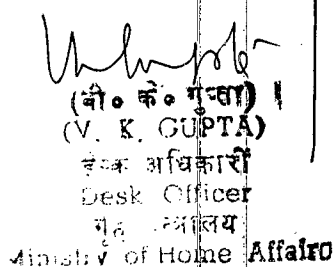 (वी॰ के॰ गुप्ता)
(V. K. GUPTA)
डेस्क अधिकारी
Desk Officer
गृह मंत्रालय
Ministry of Home Affairs